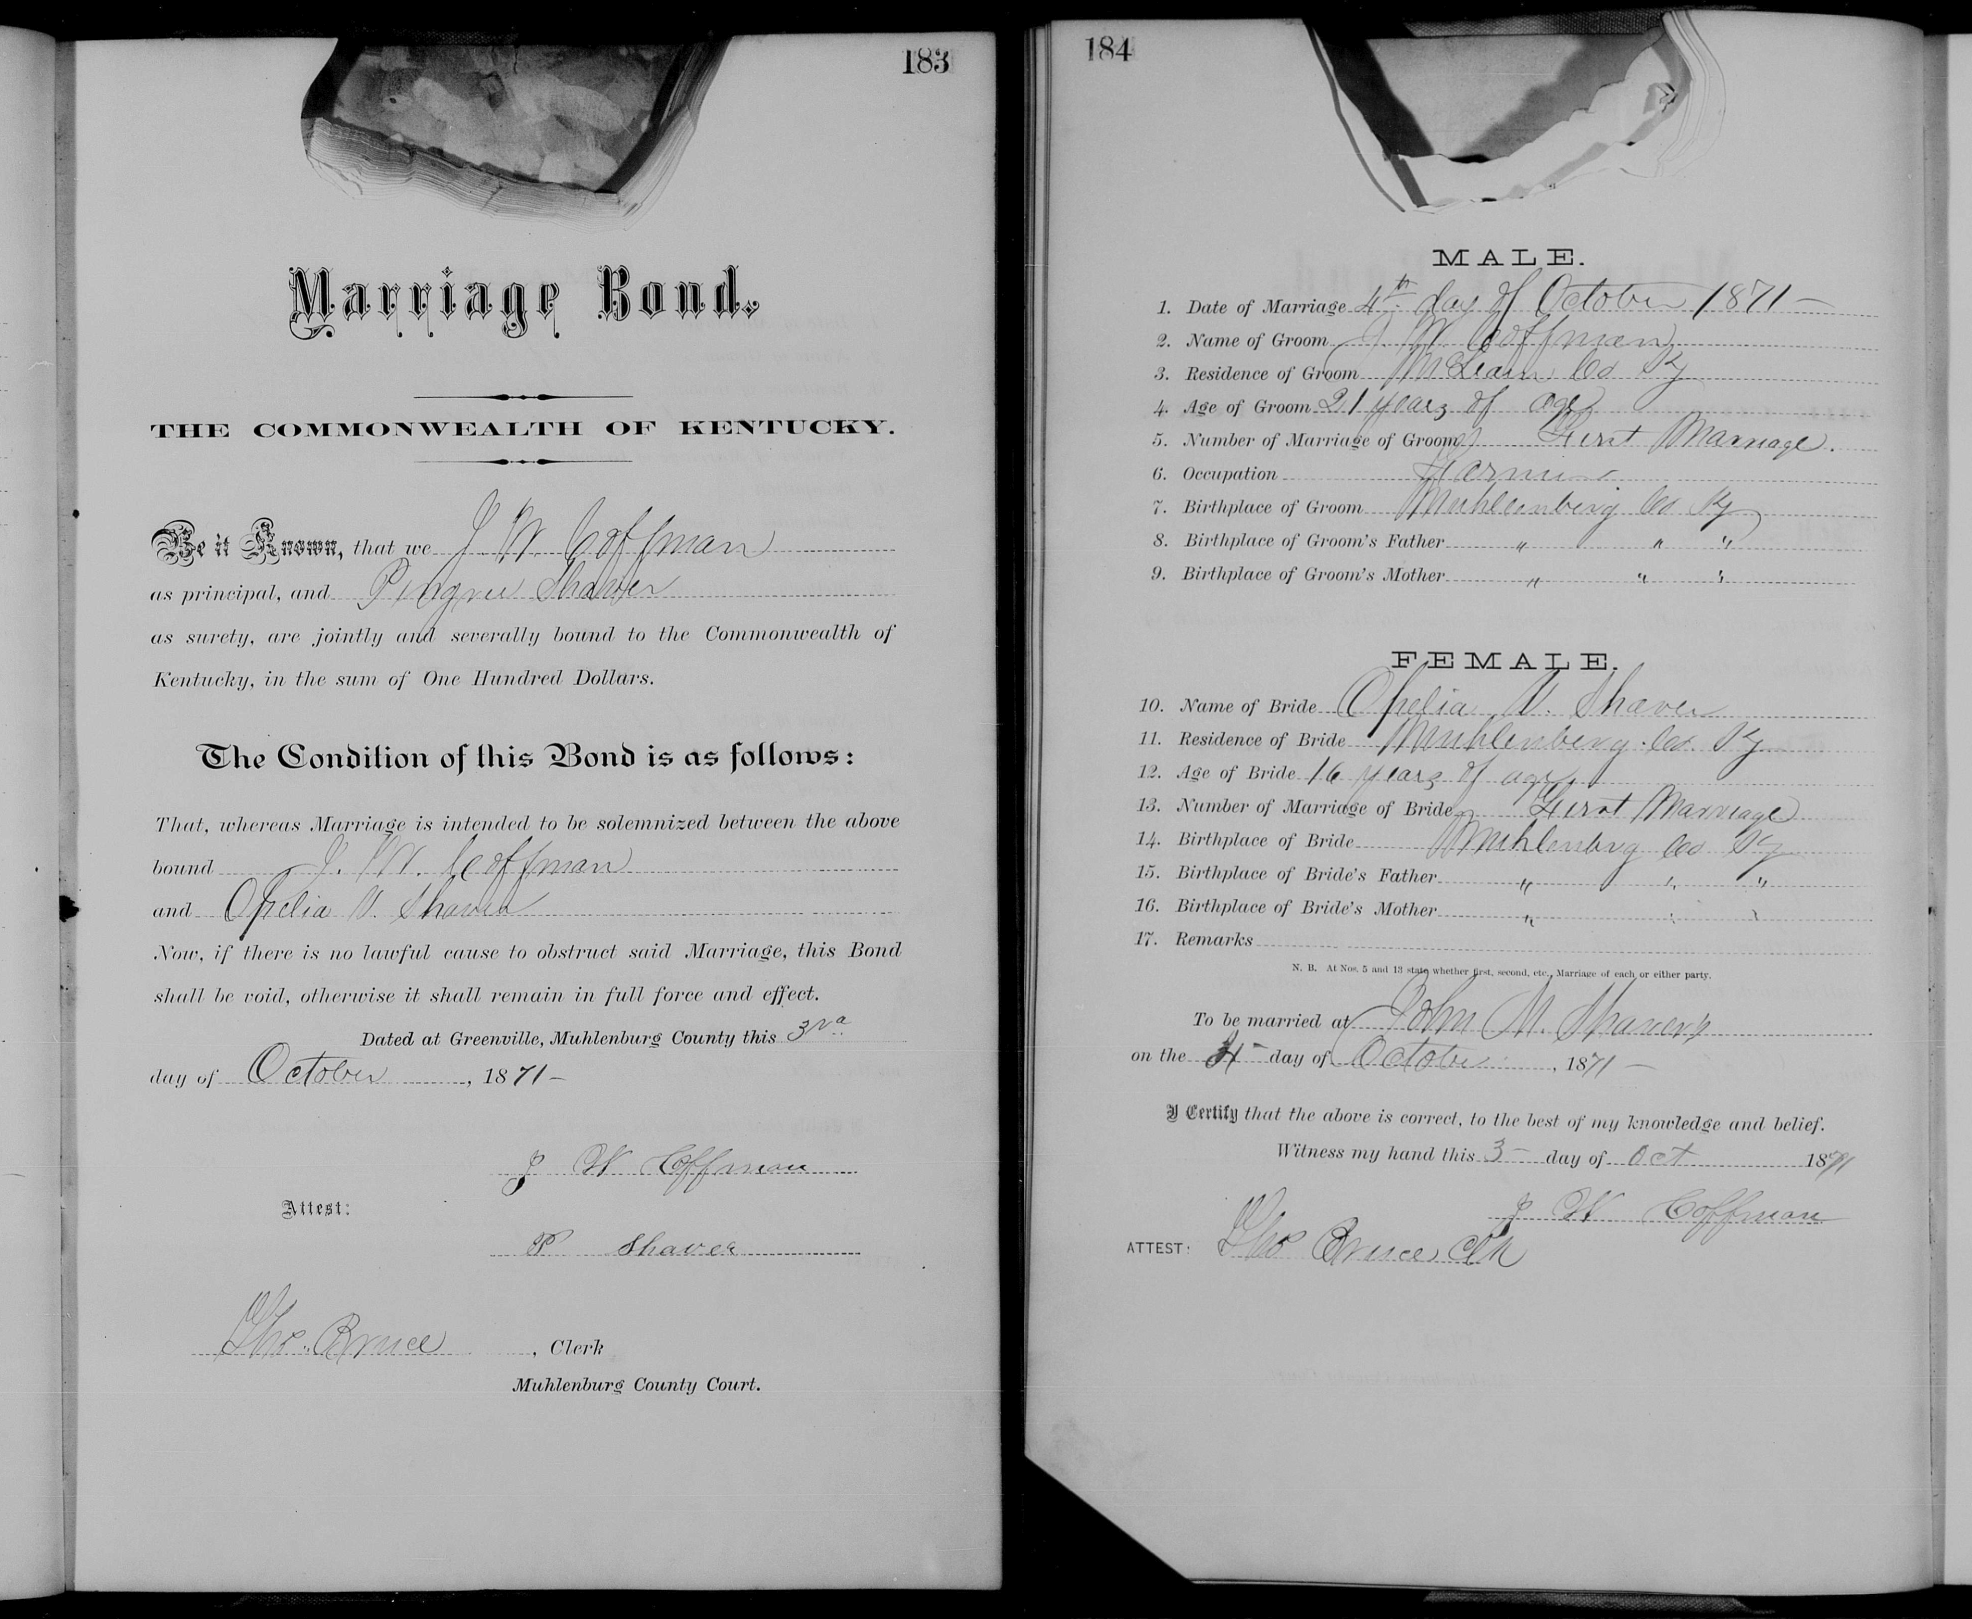 183
Marriage Bond.
THE COMMONWEALTH OF KENTUCKY.
Be it Known, that we J W Coffman
as principal, and Pingree Shaver
as surety, are jointly and severally bound to the Commonwealth of
Kentucky, in the sum of One Hundred Dollars.
The Condition of this Bond is as follows:
That, whereas Marriage is intended to be solemnized between the above
bound J. W. Coffman
and Ophelia V. Shaver
Now, if there is no lawful cause to obstruct said Marriage, this Bond
shall be void, otherwise it shall remain in full force and effect.
Dated at Greenville, Muhlenburg County this 3rd
day of October, 1871 —
J W Coffman
Attest:
P Shaver
Thos. Bruce, Clerk
Muhlenburg County Court.
184
MALE.
1. Date of Marriage 4th day of October 1871 —
2. Name of Groom J. W. Coffman
3. Residence of Groom McLean Co Ky
4. Age of Groom 21 years of age
5. Number of Marriage of Groom First Marriage.
6. Occupation Farmer
7. Birthplace of Groom Muhlenberg Co Ky
8. Birthplace of Groom's Father " " "
9. Birthplace of Groom's Mother " " "
FEMALE.
10. Name of Bride Ophelia V. Shaver
11. Residence of Bride Muhlenberg Co. Ky
12. Age of Bride 16 years of age
13. Number of Marriage of Bride First Marriage
14. Birthplace of Bride Muhlenbrg Co Ky
15. Birthplace of Bride's Father " " "
16. Birthplace of Bride's Mother " " "
17. Remarks
N. B. At Nos. 5 and 13 state whether first, second, etc., Marriage of each or either party.
To be married at John M. Shaver's
on the 4 — day of October, 1871 —
I Certify that the above is correct, to the best of my knowledge and belief.
Witness my hand this 3 — day of Oct 1871
J W Coffman
ATTEST: Thos Bruce Clk